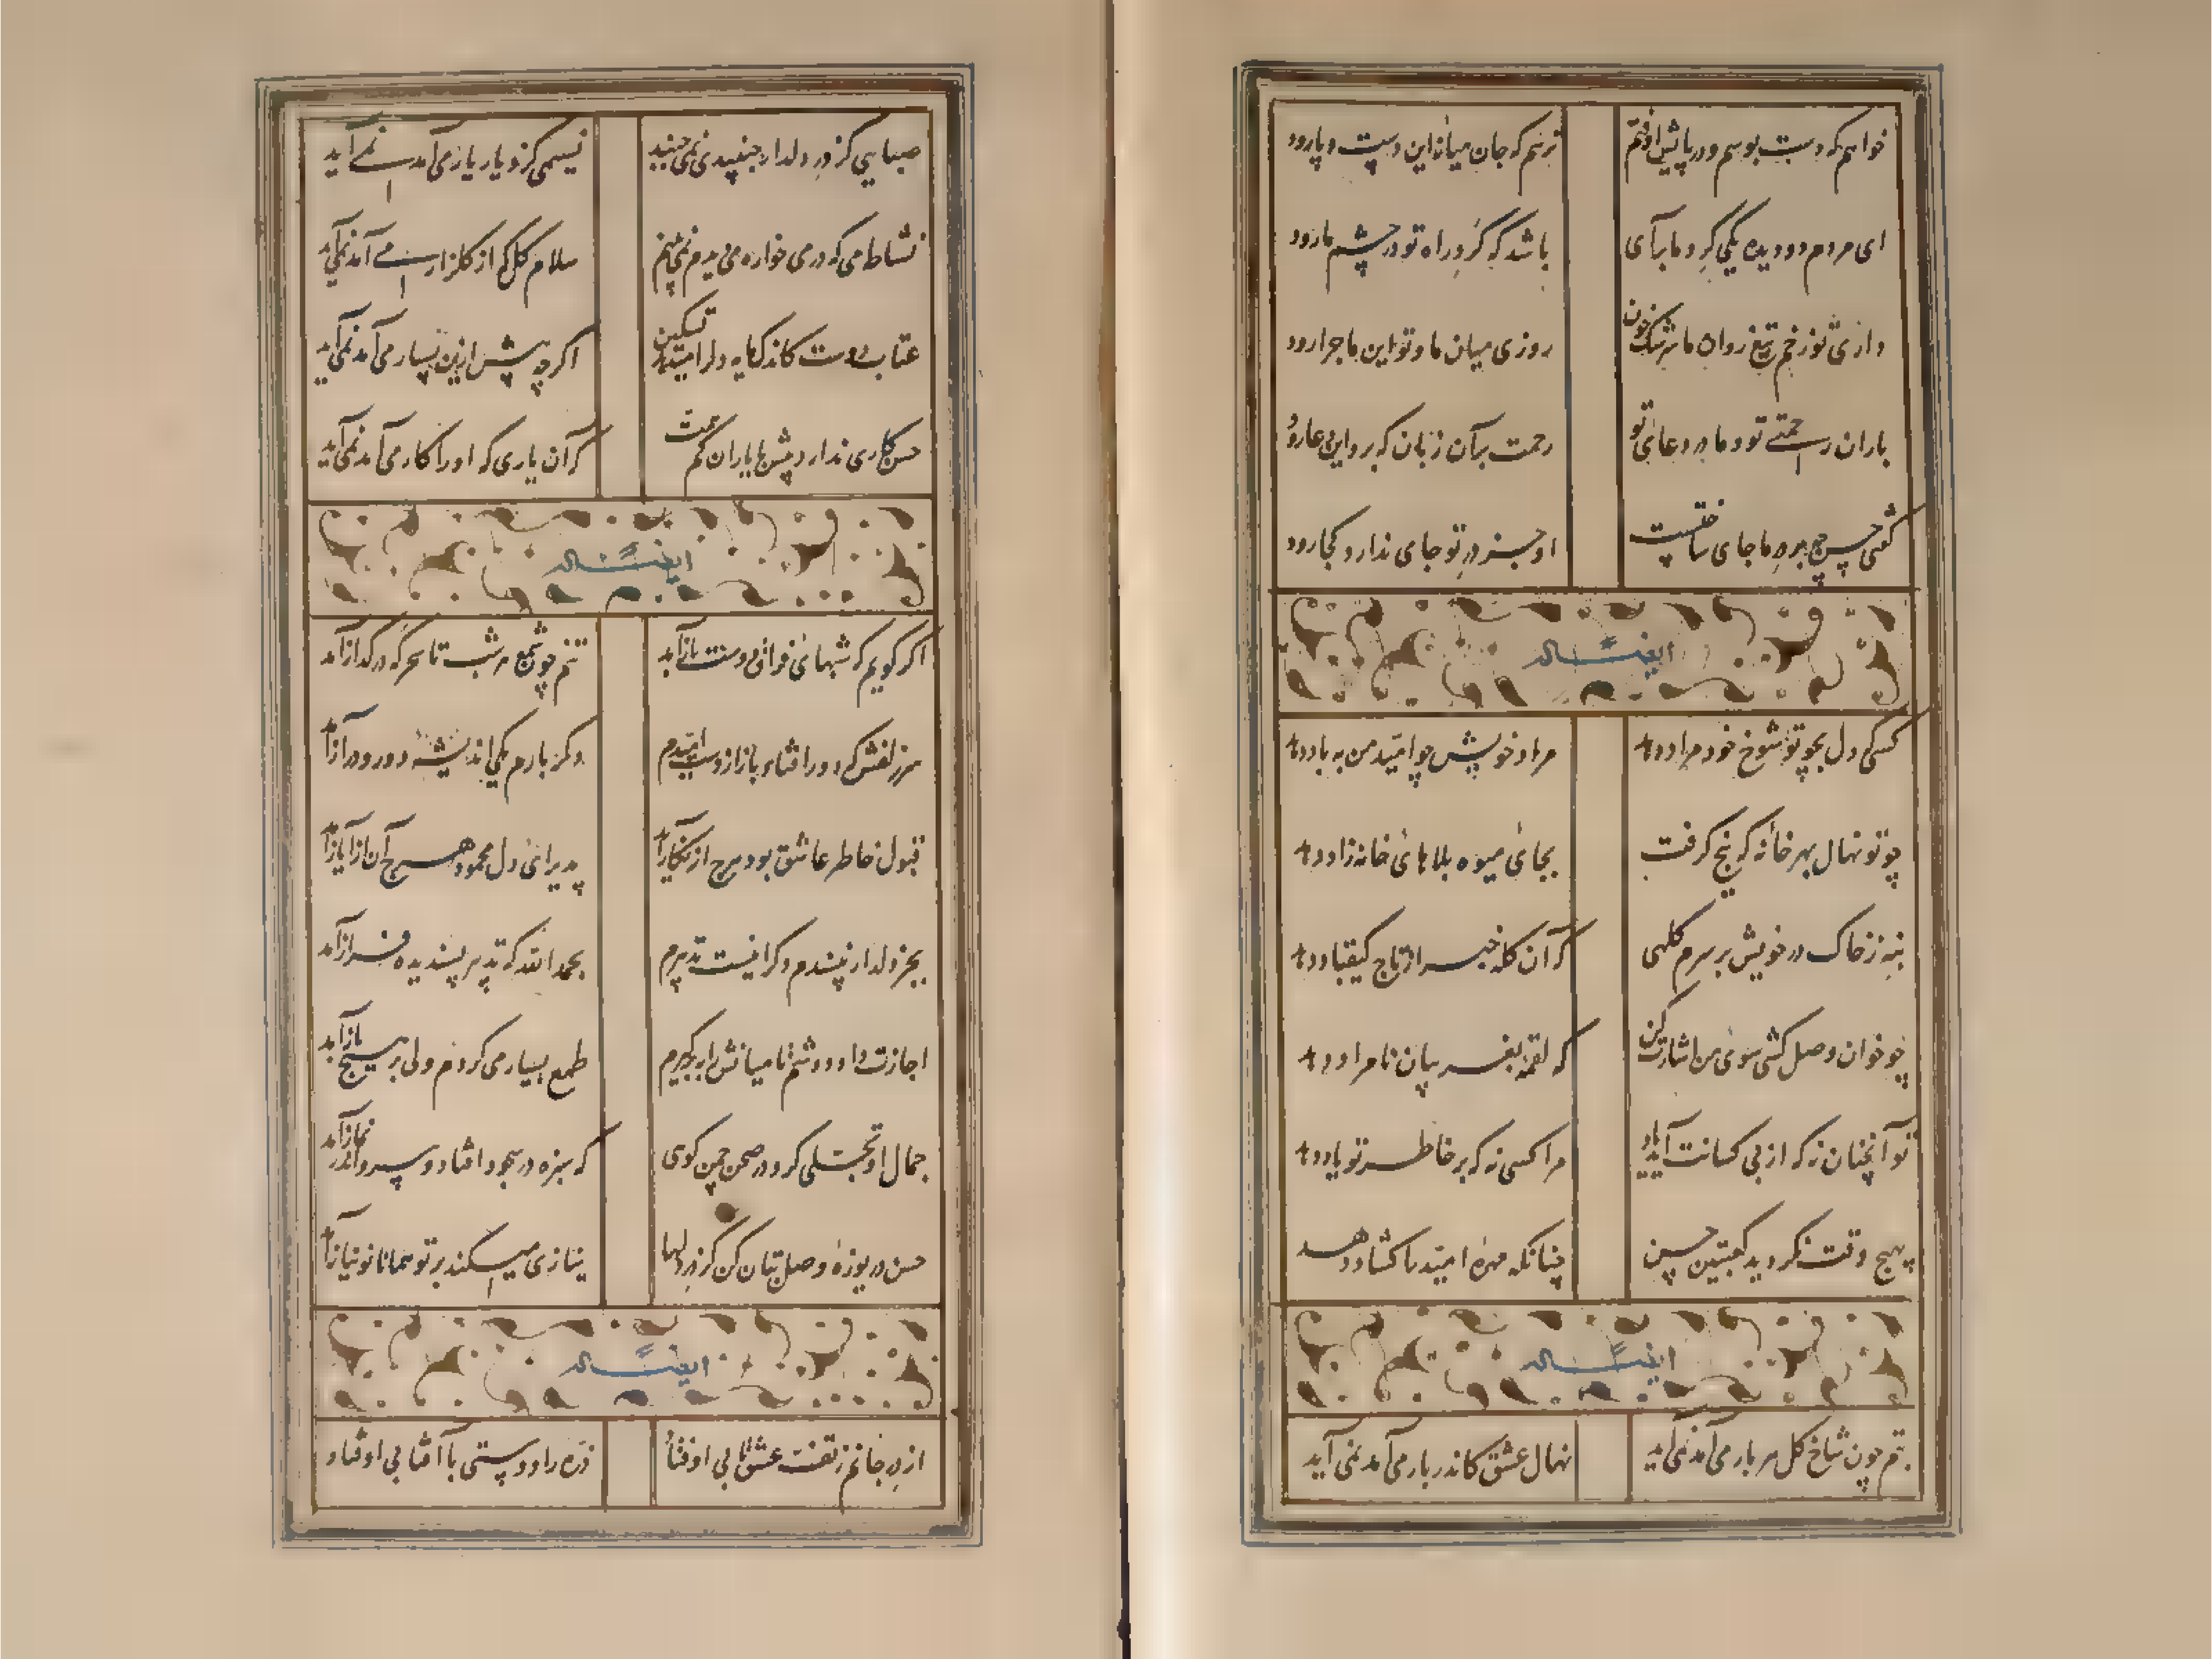 خواهم که دست بوسم و در پاش اوفتم
ترسم که جان میانهٔ این دست و پا رود
ای مردم دو دیده یکی گرد ما برآی
باشد که گرد راه تو در چشم ما رود
داری تو زخم تیغ روان ما سرشک خون
روزی میان ما و تو این ماجرا رود
باران رحمتی تو و ما در دعای تو
رحمت بر آن زبان که برو این دعا رود
گفتی حسن چو بر در ما جای ساختست
او جز در تو جای ندارد کجا رود
ایضاً له
کسی دل بچو تو شوخ خود مراد دهد
مراد خویش چو امید من به باد دهد
چو تو نهال بهر خانه که بیخ گرفت
بجای میوه بلاهای خانه زاد دهد
بنه ز خاک در خویش بر سرم کلهی
که آن کله خبر از تاج کیقباد دهد
چو خوان وصل کشی سوی من اشارت کن
که لقمهٔ بغریبان نامراد دهد
تو آنچنان نه که از بی کسانت آید یاد
مرا کسی نه که بر خاطر تو یاد دهد
بهیچ وقت نگردید کعبتین حسن
چنانکه مهرهٔ امید را گشاد دهد
ایضاً له
برم چون شاخ گل هر بار می آمد نمی آید
نهال عشق کاندر بار می آمد نمی آید
صبایی کز در دلدار جنبیدی نمی جنبد
نسیمی کز دیار یار می آمد نمی آید
نشاط می که در می خواره می دیدم نمی بینم
سلام گل که از گلزار می آمد نمی آید
عتاب دوست کاندک مایه دلرا تسکین
اگرچه پیش ازین بسیار می آمد نمی آید
حسن کاری ندارد پیش ما یاران کم همت
کز آن یاری که او را کار می آمد نمی آید
ایضاً له
اگر گویم که شبهای فراق دوست باز آید
تنم چون شمع هر شب تا سحرگه در گداز آید
سر زلفش که دور افتاد باز از دست امیدم
وگر بارم یکی اندیشه دور و دراز آمد
قبول خاطر عاشق بود هرچ از نگار آمد
پذیرای دل محمود هرچ آن از ایاز آمد
بجز دلدار نپسندم دگر اینست تدبیرم
بحمد الله که تدبیر پسندیده فراز آمد
اجازت داد دوشم تا میانش را ببر گیرم
طمع بسیار می کردم ولی بر هیچ باز آمد
جمال او تجلی کرد در صحن چمن گویی
که سبزه در سجود افتاد و سرو اندر نماز آمد
حسن دریوزهٔ وصل بتان کن کز در دلها
نیازی میکند بر تو همانا نو نیاز آمد
ایضاً له
از در جانم ز تفت عشق تابی اوفتاد
ذره را دوستی با آفتابی اوفتاد